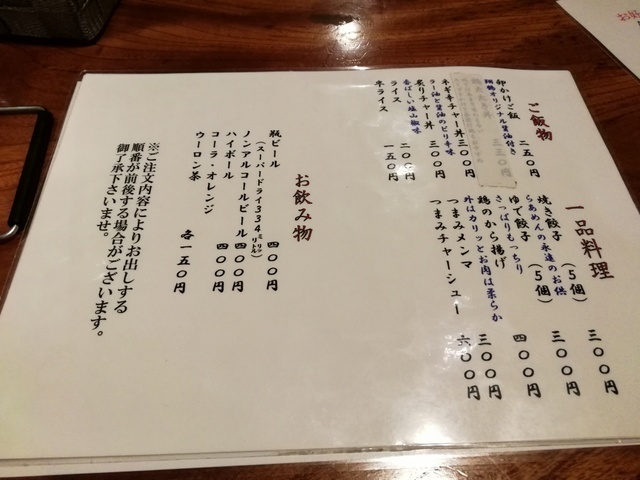 ご飯物
卵かけご飯 二五〇円
オリジナル醤油付き
ネギ辛チャー丼 三〇〇円
ラー油と醤油のピリ辛味
炙りチャー丼 三〇〇円
香ばしい塩山椒味
ライス 二〇〇円
半ライス 一五〇円
一品料理
焼き餃子（5個） 三〇〇円
らあめんの永遠のお供
ゆで餃子（5個） 三〇〇円
さっぱりもっちり
鶏のから揚げ 四〇〇円
外はカリッとお肉は柔らか
つまみメンマ 三〇〇円
つまみチャーシュー 六〇〇円
お飲み物
瓶ビール 四〇〇円
（スーパードライ334ミリリットル）
ノンアルコールビール 四〇〇円
ハイボール 四〇〇円
コーラ・オレンジ
ウーロン茶 各一五〇円
※ご注文内容によりお出しする
順番が前後する場合がございます。
御了承下さいませ。